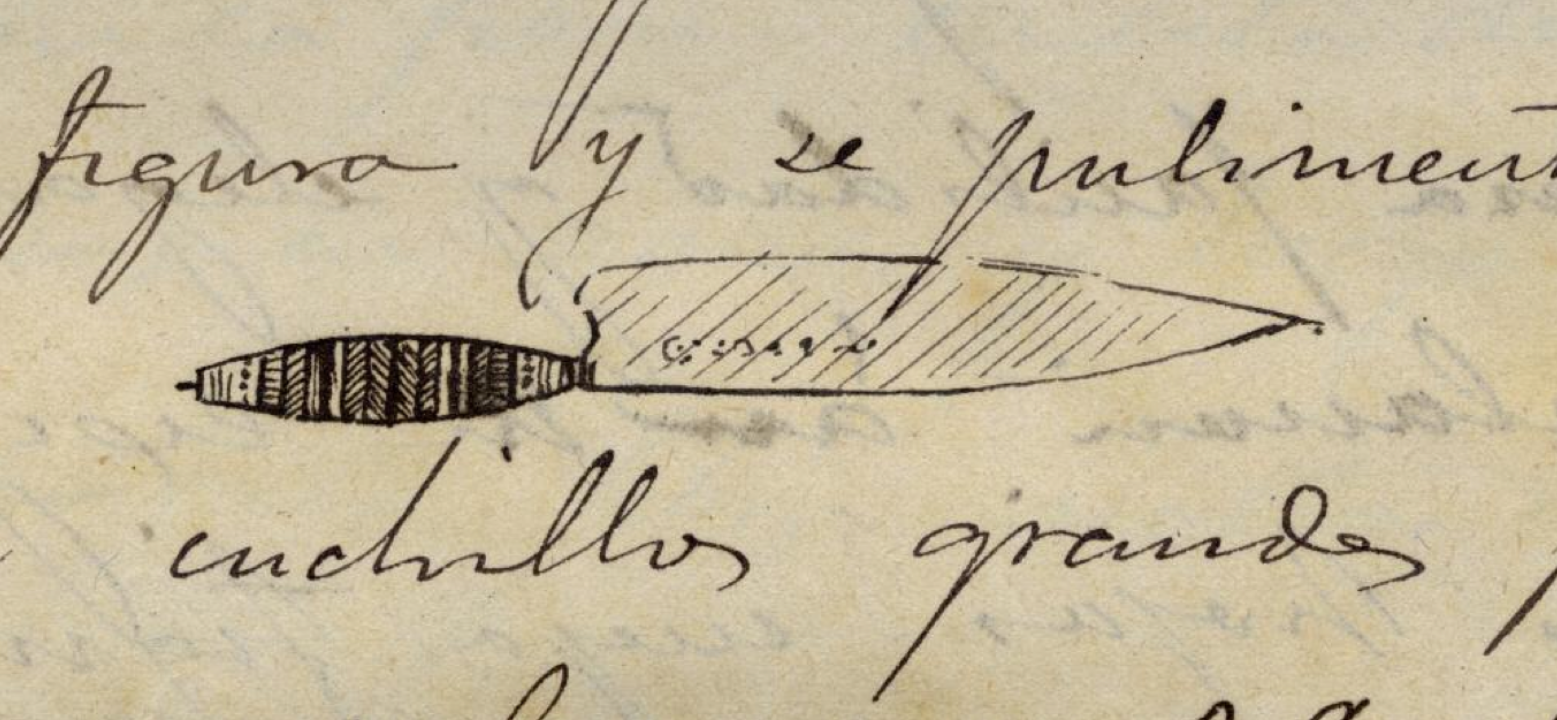 figura y se puliment
cuchillos grandes